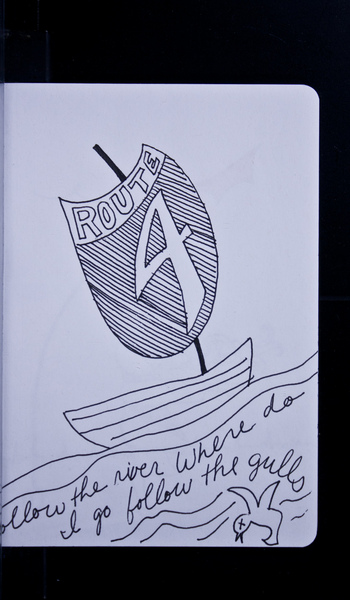 ROUTE
4
ollow the river where do
I go follow the gulls